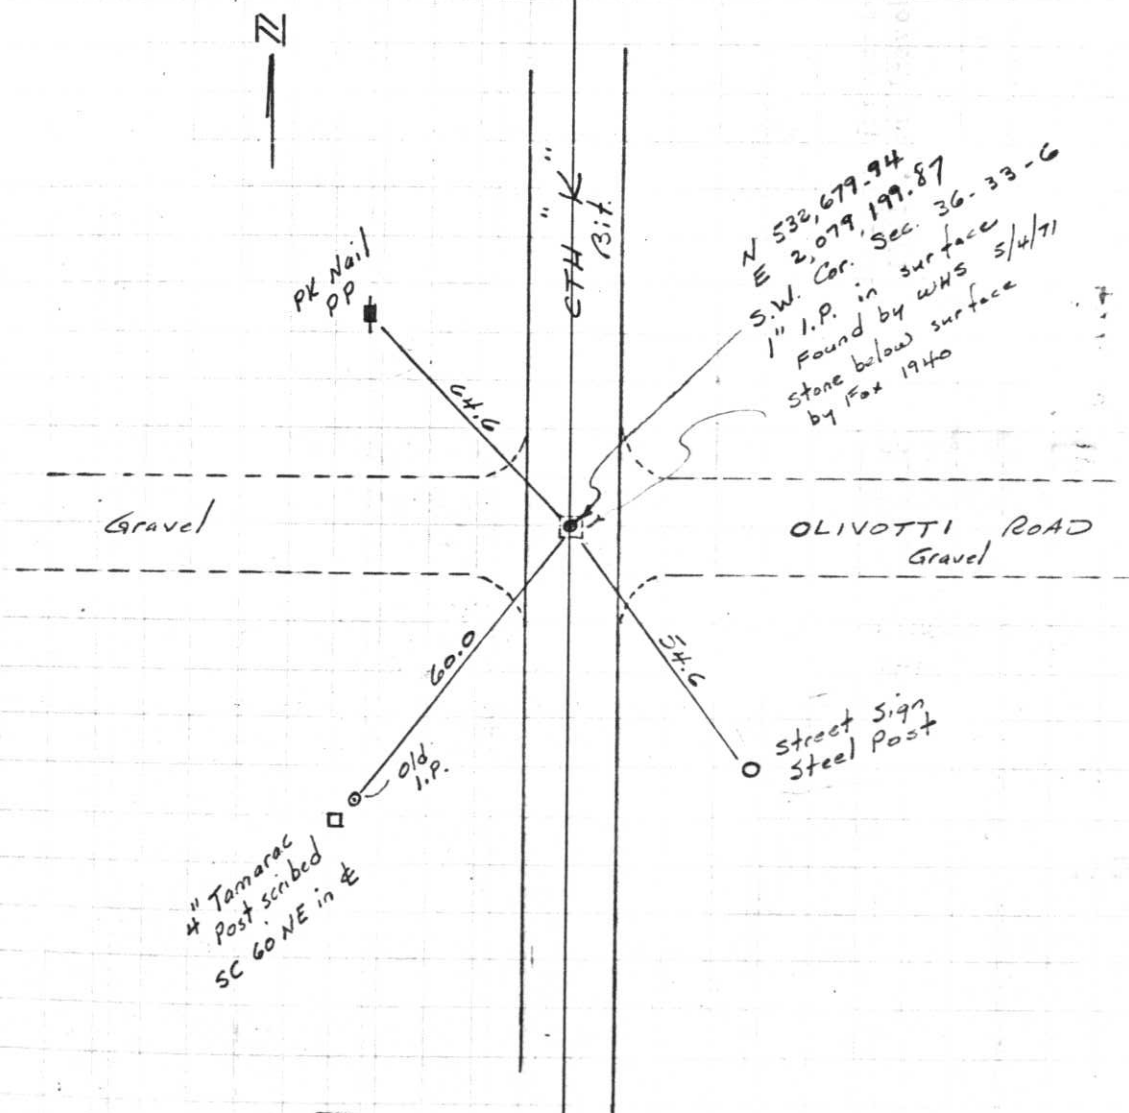 N
CTH "K"
Bit.
N 532,679.94
E 2,079,199.87
S.W. Cor. Sec. 36-33-6
1" I.P. in surface
Found by WHS 5/4/71
Stone below surface
by Fox 1940
PK Nail
PP
64.6
Gravel
OLIVOTTI ROAD
Gravel
60.0
54.6
Old
I.P.
Street Sign
Steel Post
4" Tamarac
Post scribed
SC 60 NE in ℄